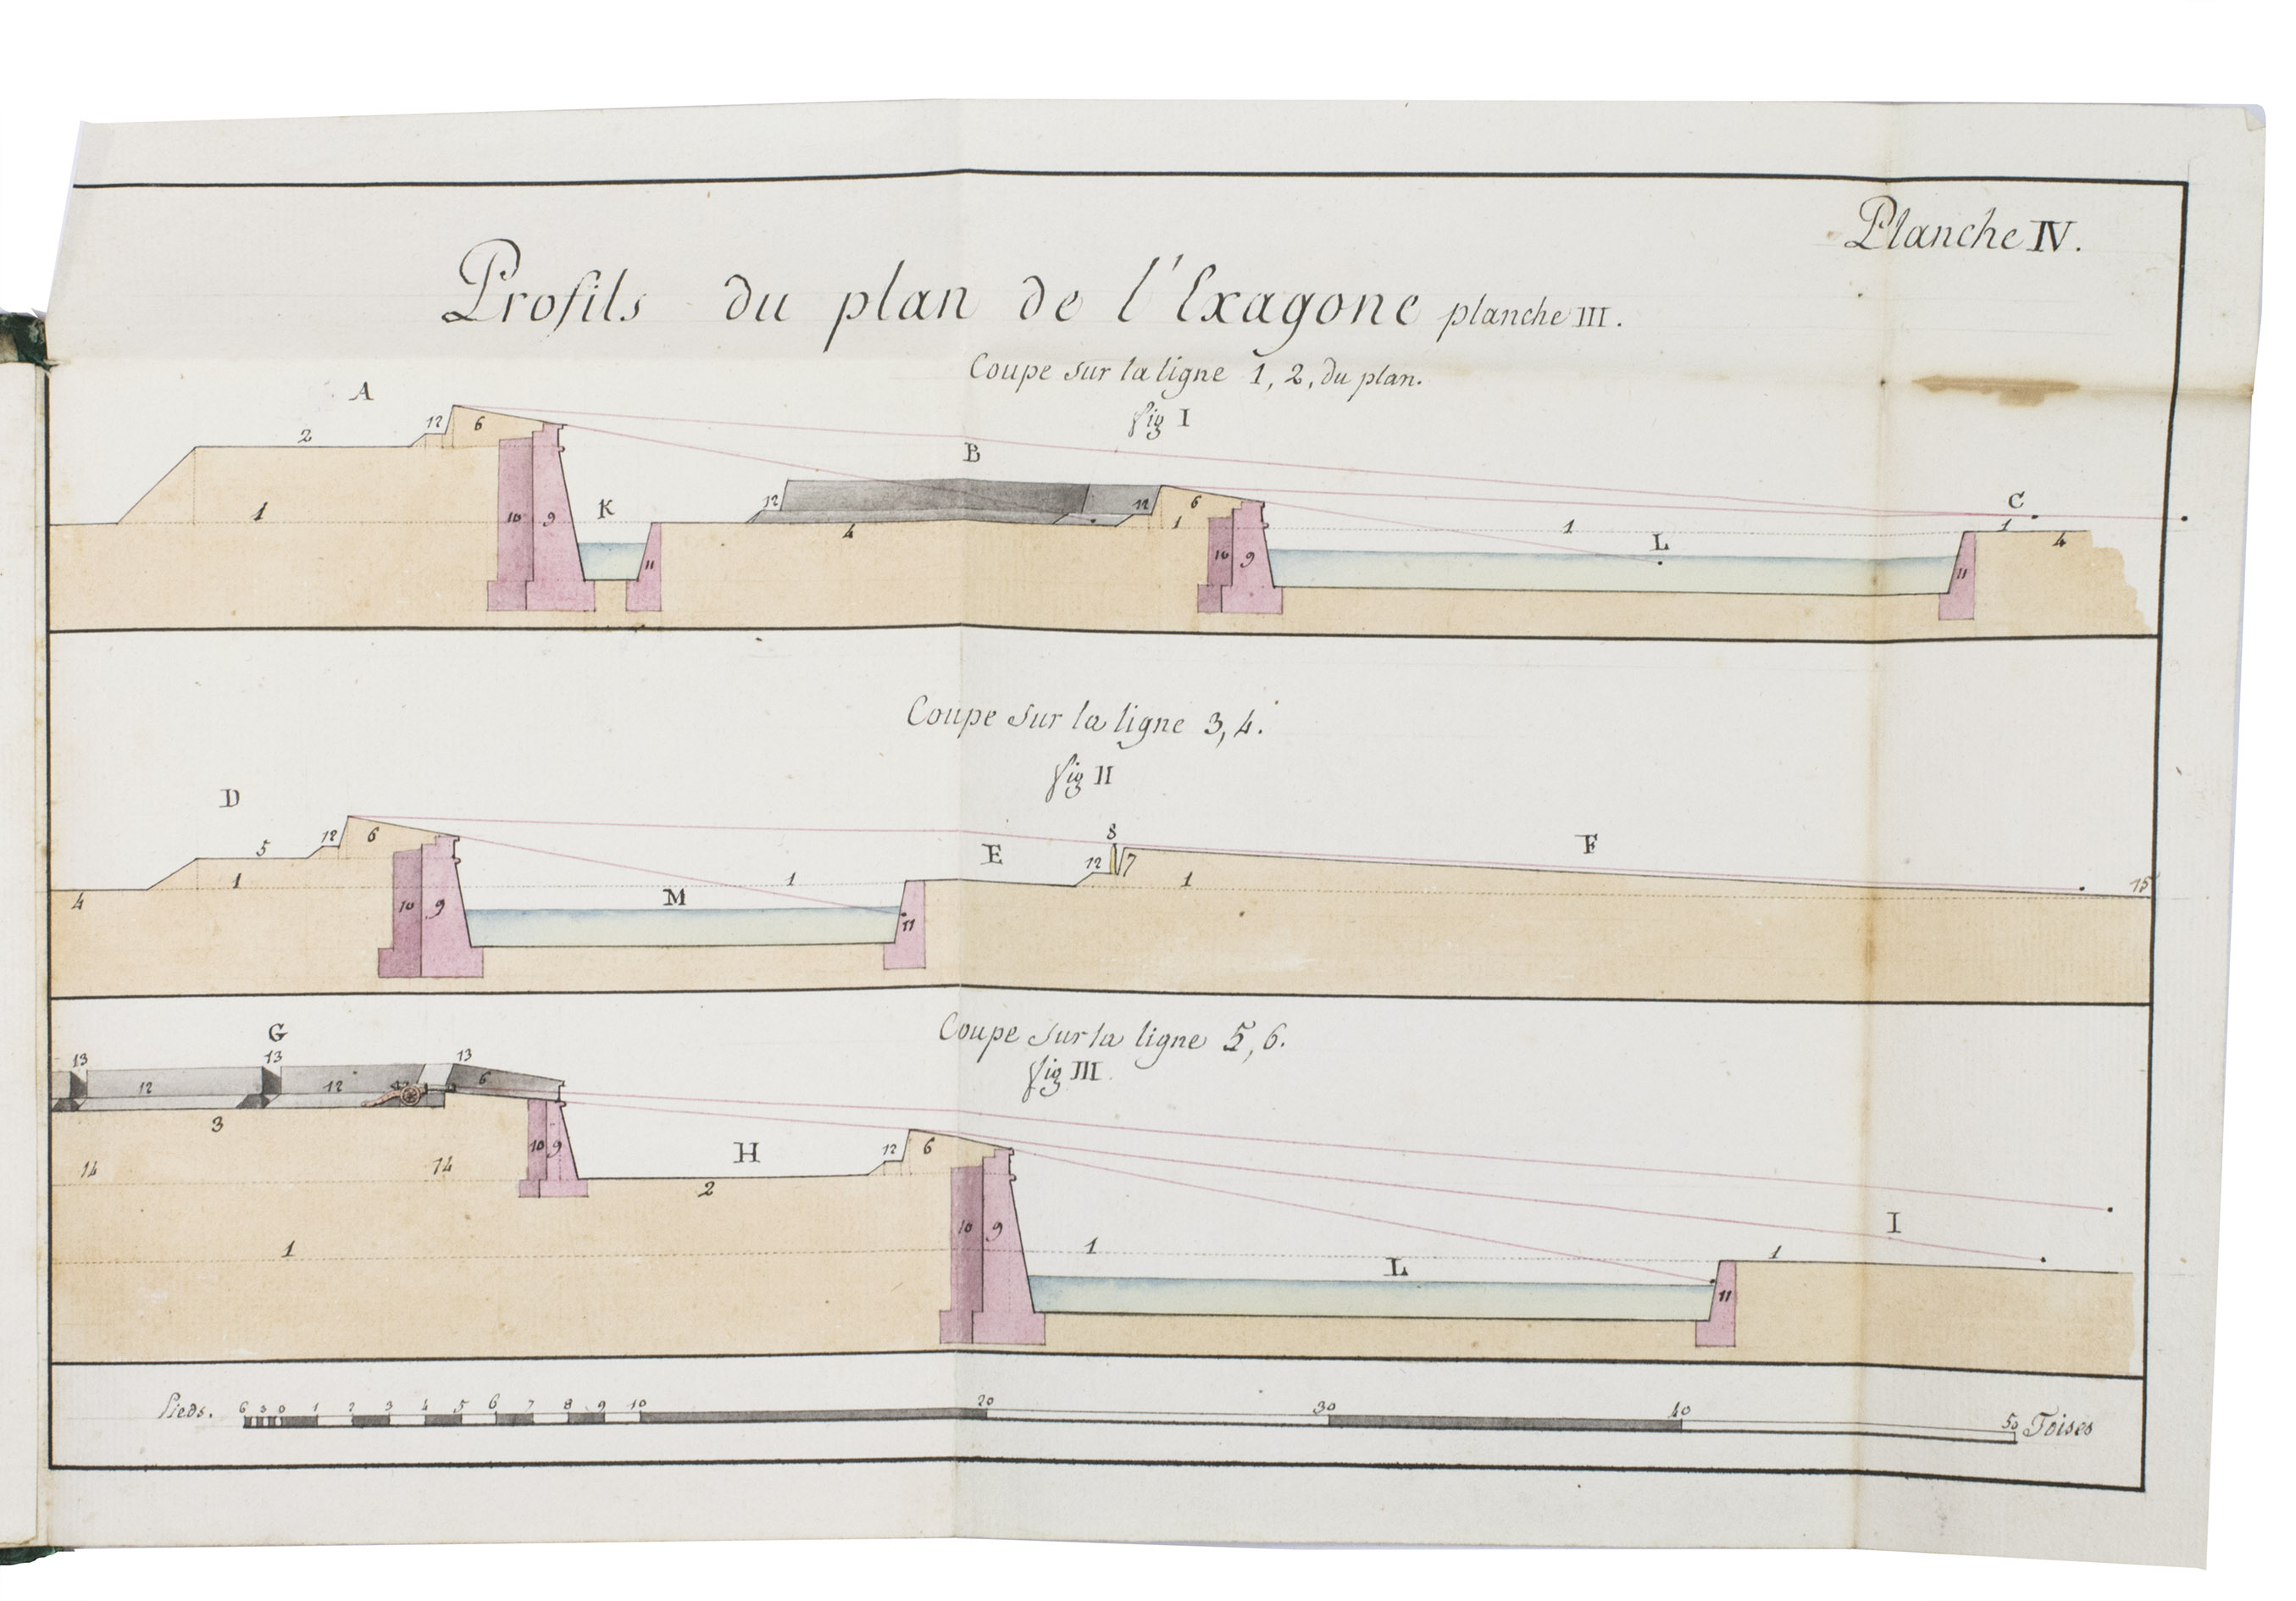 Planche IV.
Profils du plan de l'Exagone planche III.
Coupe sur la ligne 1, 2, du plan.
fig I
A
B
C
2 12 6
12 12 6
1 10 9 K 11 4 1 10 9 1 L 11 1 4
Coupe sur la ligne 3, 4.
fig II
D
E
F
5 12 6 8 12 7
4 1 10 9 M 1 11 1 15
Coupe sur la ligne 5, 6.
fig III.
G
13 13 13
12 12 6
3
14 14 10 9 H 2 12 6
1 10 9 1 L 11 1 I
Pieds. 6 3 0 1 2 3 4 5 6 7 8 9 10 20 30 40 50 Toises